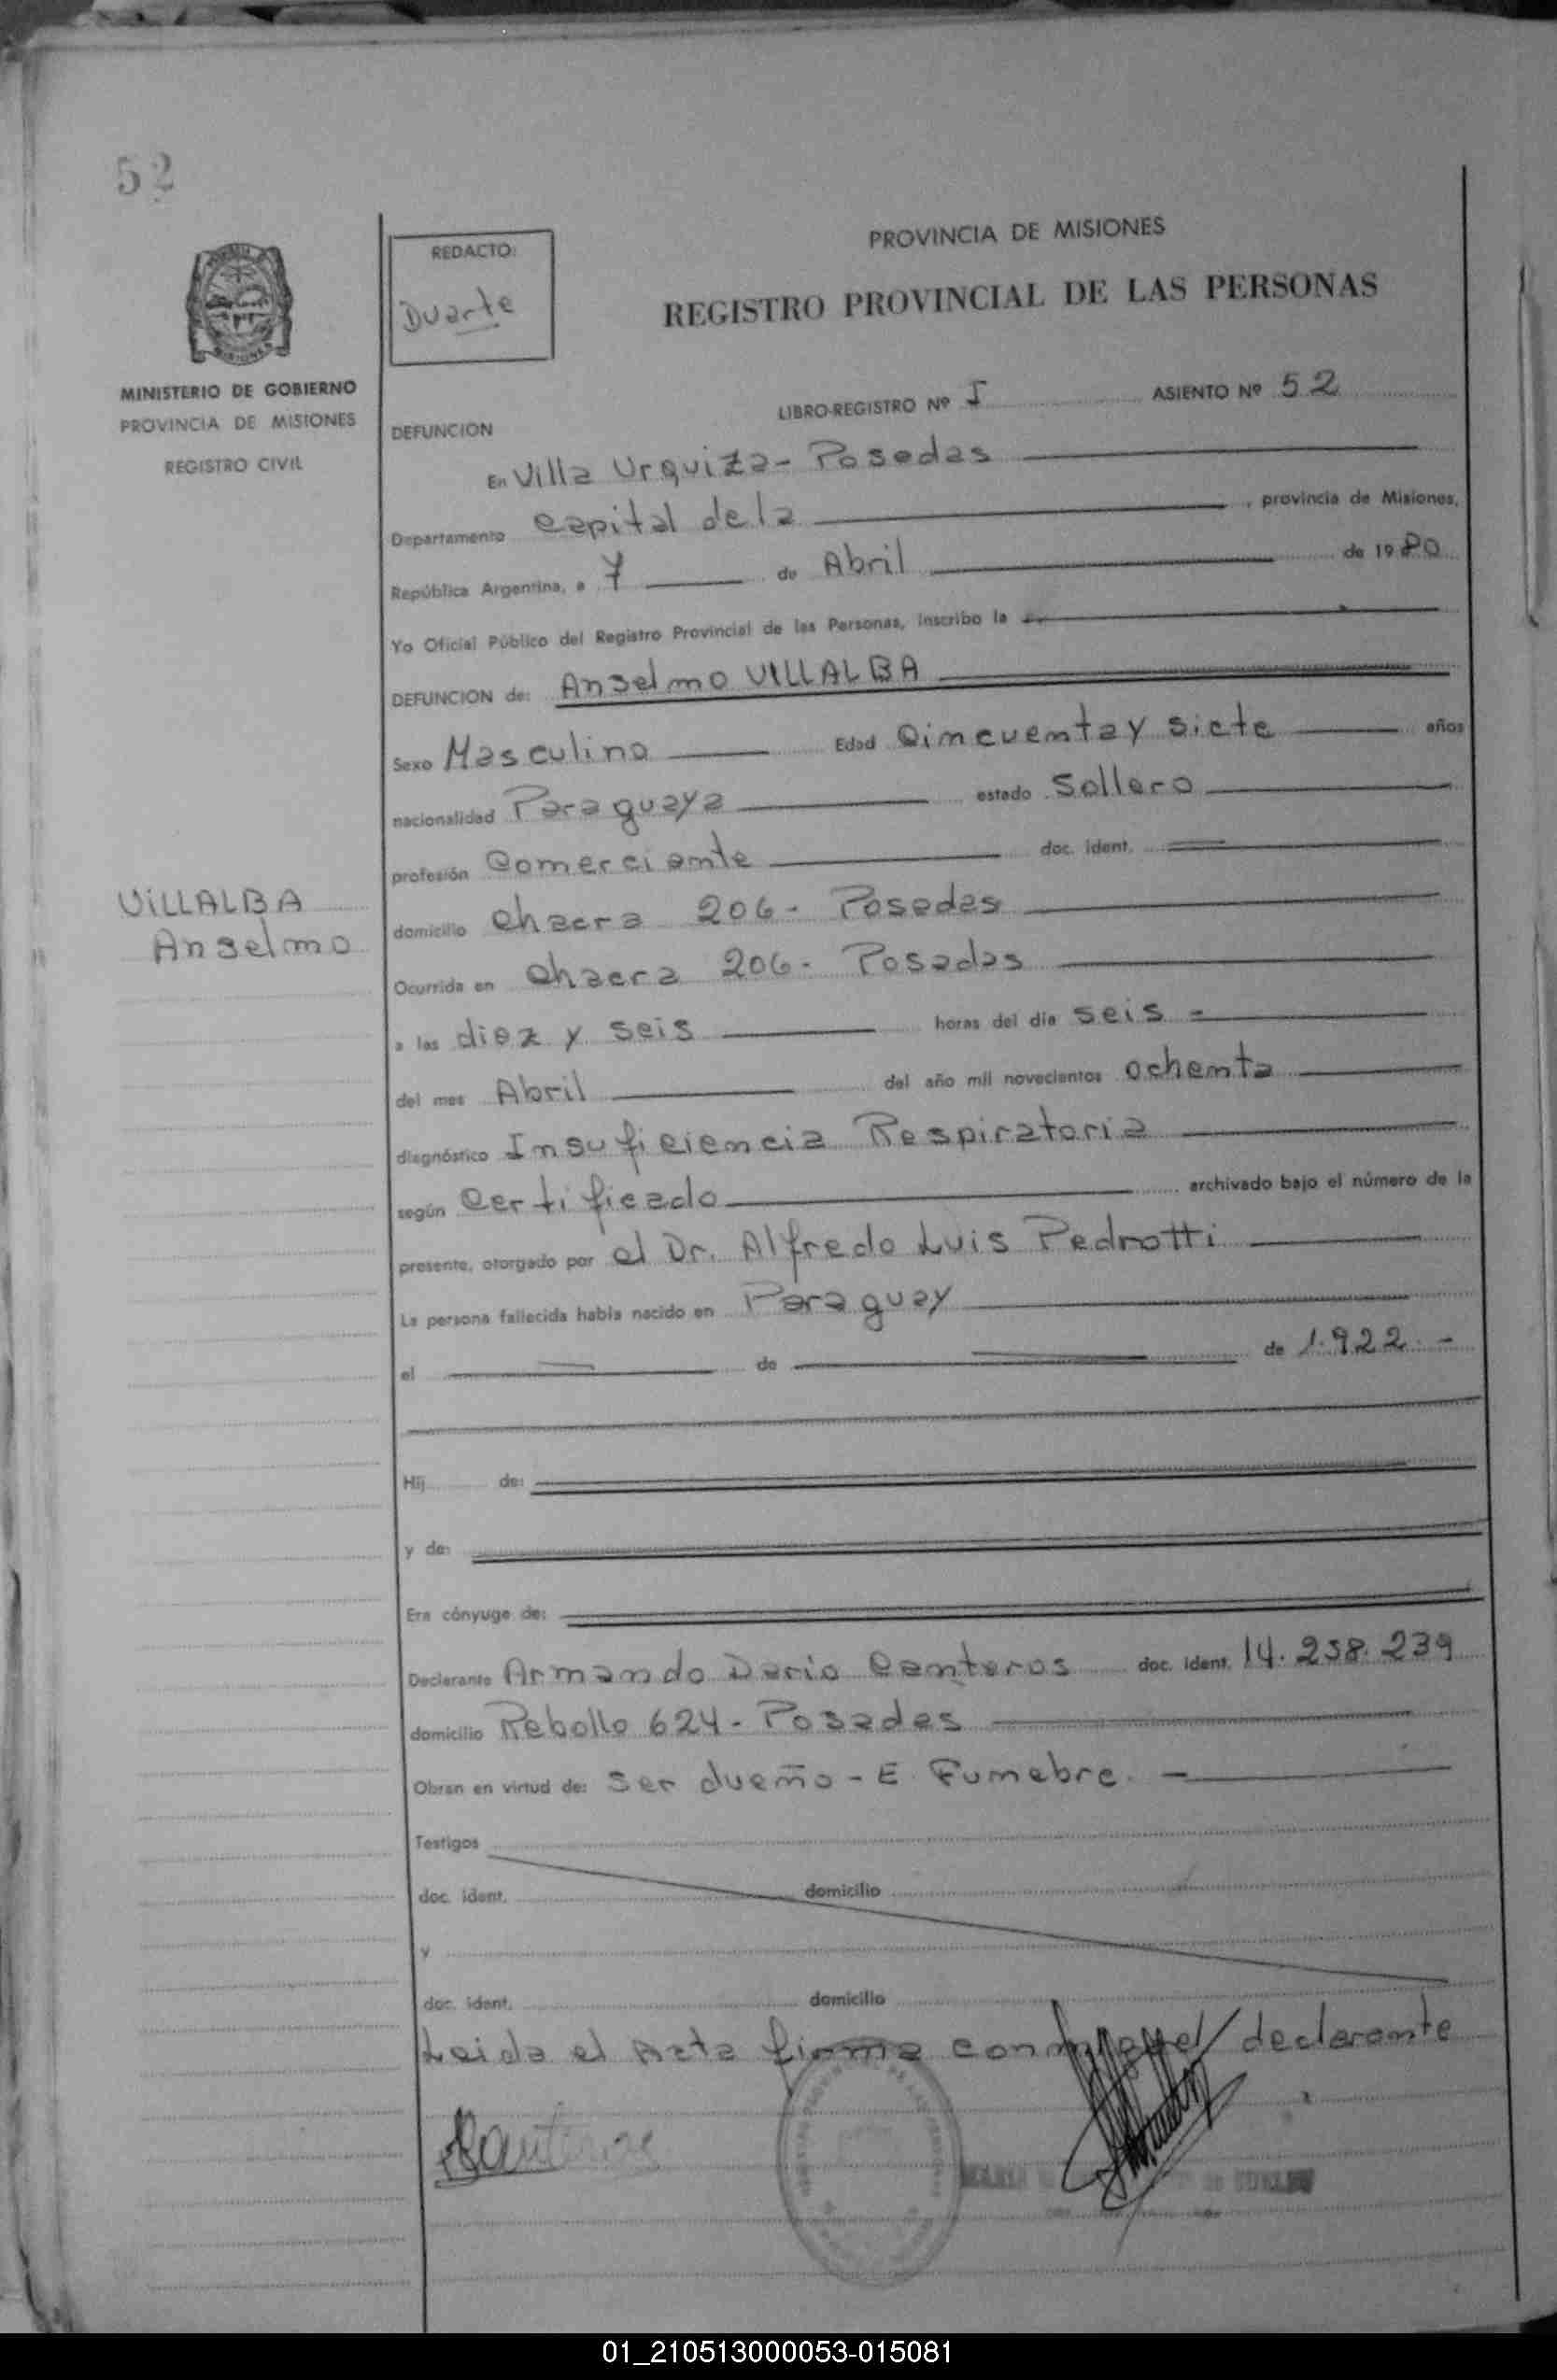 52
REDACTO:
Duarte
PROVINCIA DE MISIONES
REGISTRO PROVINCIAL DE LAS PERSONAS
MINISTERIO DE GOBIERNO
PROVINCIA DE MISIONES
REGISTRO CIVIL
LIBRO-REGISTRO Nº I ASIENTO Nº 52
DEFUNCION
En Villa Urquiza - Posadas
Departamento Capital de la , provincia de Misiones,
República Argentina, a 7 de Abril de 1980
Yo Oficial Público del Registro Provincial de las Personas, inscribo la
DEFUNCION de: Anselmo VILLALBA
Sexo Masculino Edad Cincuenta y siete años
nacionalidad Paraguaya estado Soltero
profesión Comerciante doc. ident.
VILLALBA
Anselmo
domicilio Chacra 206 - Posadas
Ocurrida en Chacra 206 - Posadas
a las diez y seis horas del día seis -
del mes Abril del año mil novecientos ochenta
diagnóstico Insuficiencia Respiratoria
según Certificado archivado bajo el número de la
presente, otorgado por el Dr. Alfredo Luis Pedrotti
La persona fallecida había nacido en Paraguay
el de de 1.922 -
Hij de:
y de:
Era cónyuge de:
Declarante Armando Dario Canteros doc. ident. 14.258.239
domicilio Rebollo 624 - Posadas
Obran en virtud de: ser dueño - E. Fúnebre. -
Testigos
doc. ident. domicilio
y
doc. ident. domicilio
Leida el Acta firma conmigo el declarante
Canteros
01_210513000053-015081